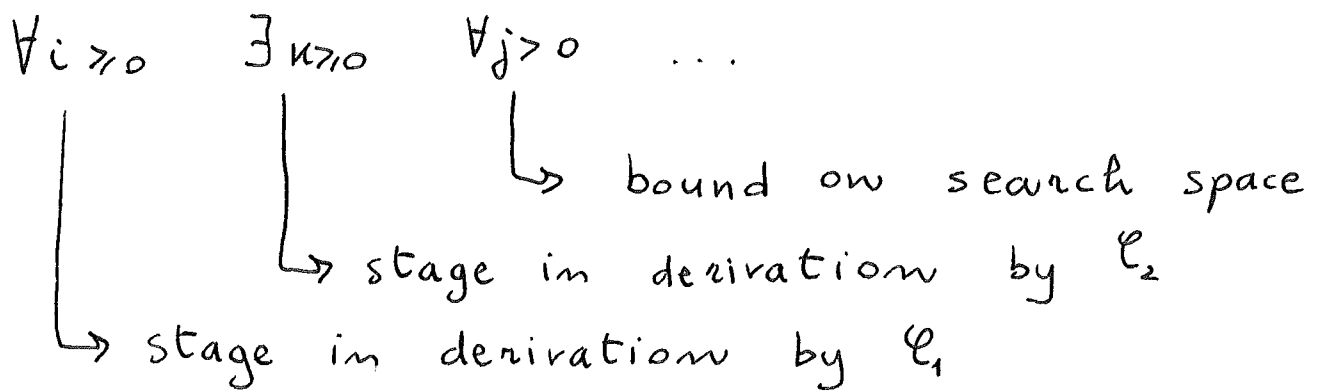 ∀i ⩾ 0 ∃k ⩾ 0 ∀j > 0 ...
bound on search space
stage in derivation by 𝒞₂
stage in derivation by 𝒞₁